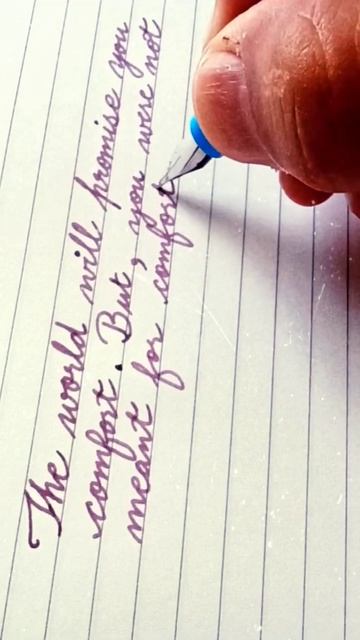 The world will promise you
comfort. But, you were not
meant for comfort